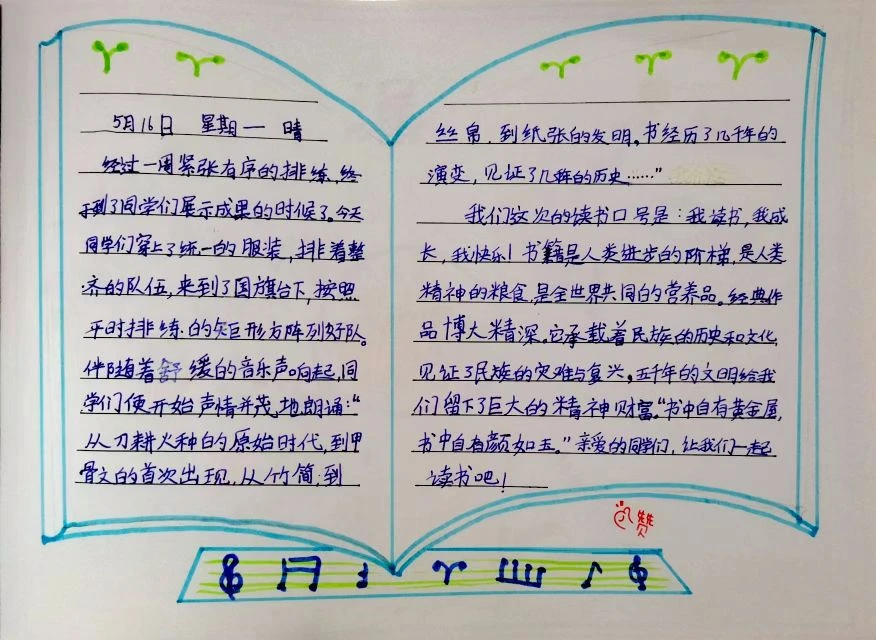 5月16日 星期一 晴
经过一周紧张有序的排练,终
于到了同学们展示成果的时候了。今天
同学们穿上了统一的服装,排着整
齐的队伍,来到了国旗台下,按照
平时排练的矩形方阵列好队。
伴随着舒缓的音乐声响起,同
学们便开始声情并茂地朗诵:“
从刀耕火种的原始时代,到甲
骨文的首次出现,从竹简,到
丝帛,到纸张的发明,书经历了几千年的
演变,见证了几千年的历史……”
我们这次的读书口号是:我读书,我成
长,我快乐!书籍是人类进步的阶梯,是人类
精神的粮食,是全世界共同的营养品。经典作
品博大精深。它承载着民族的历史和文化,
见证了民族的灾难与复兴,五千年的文明给我
们留下了巨大的精神财富。“书中自有黄金屋,
书中自有颜如玉。”亲爱的同学们,让我们一起
读书吧!
赞